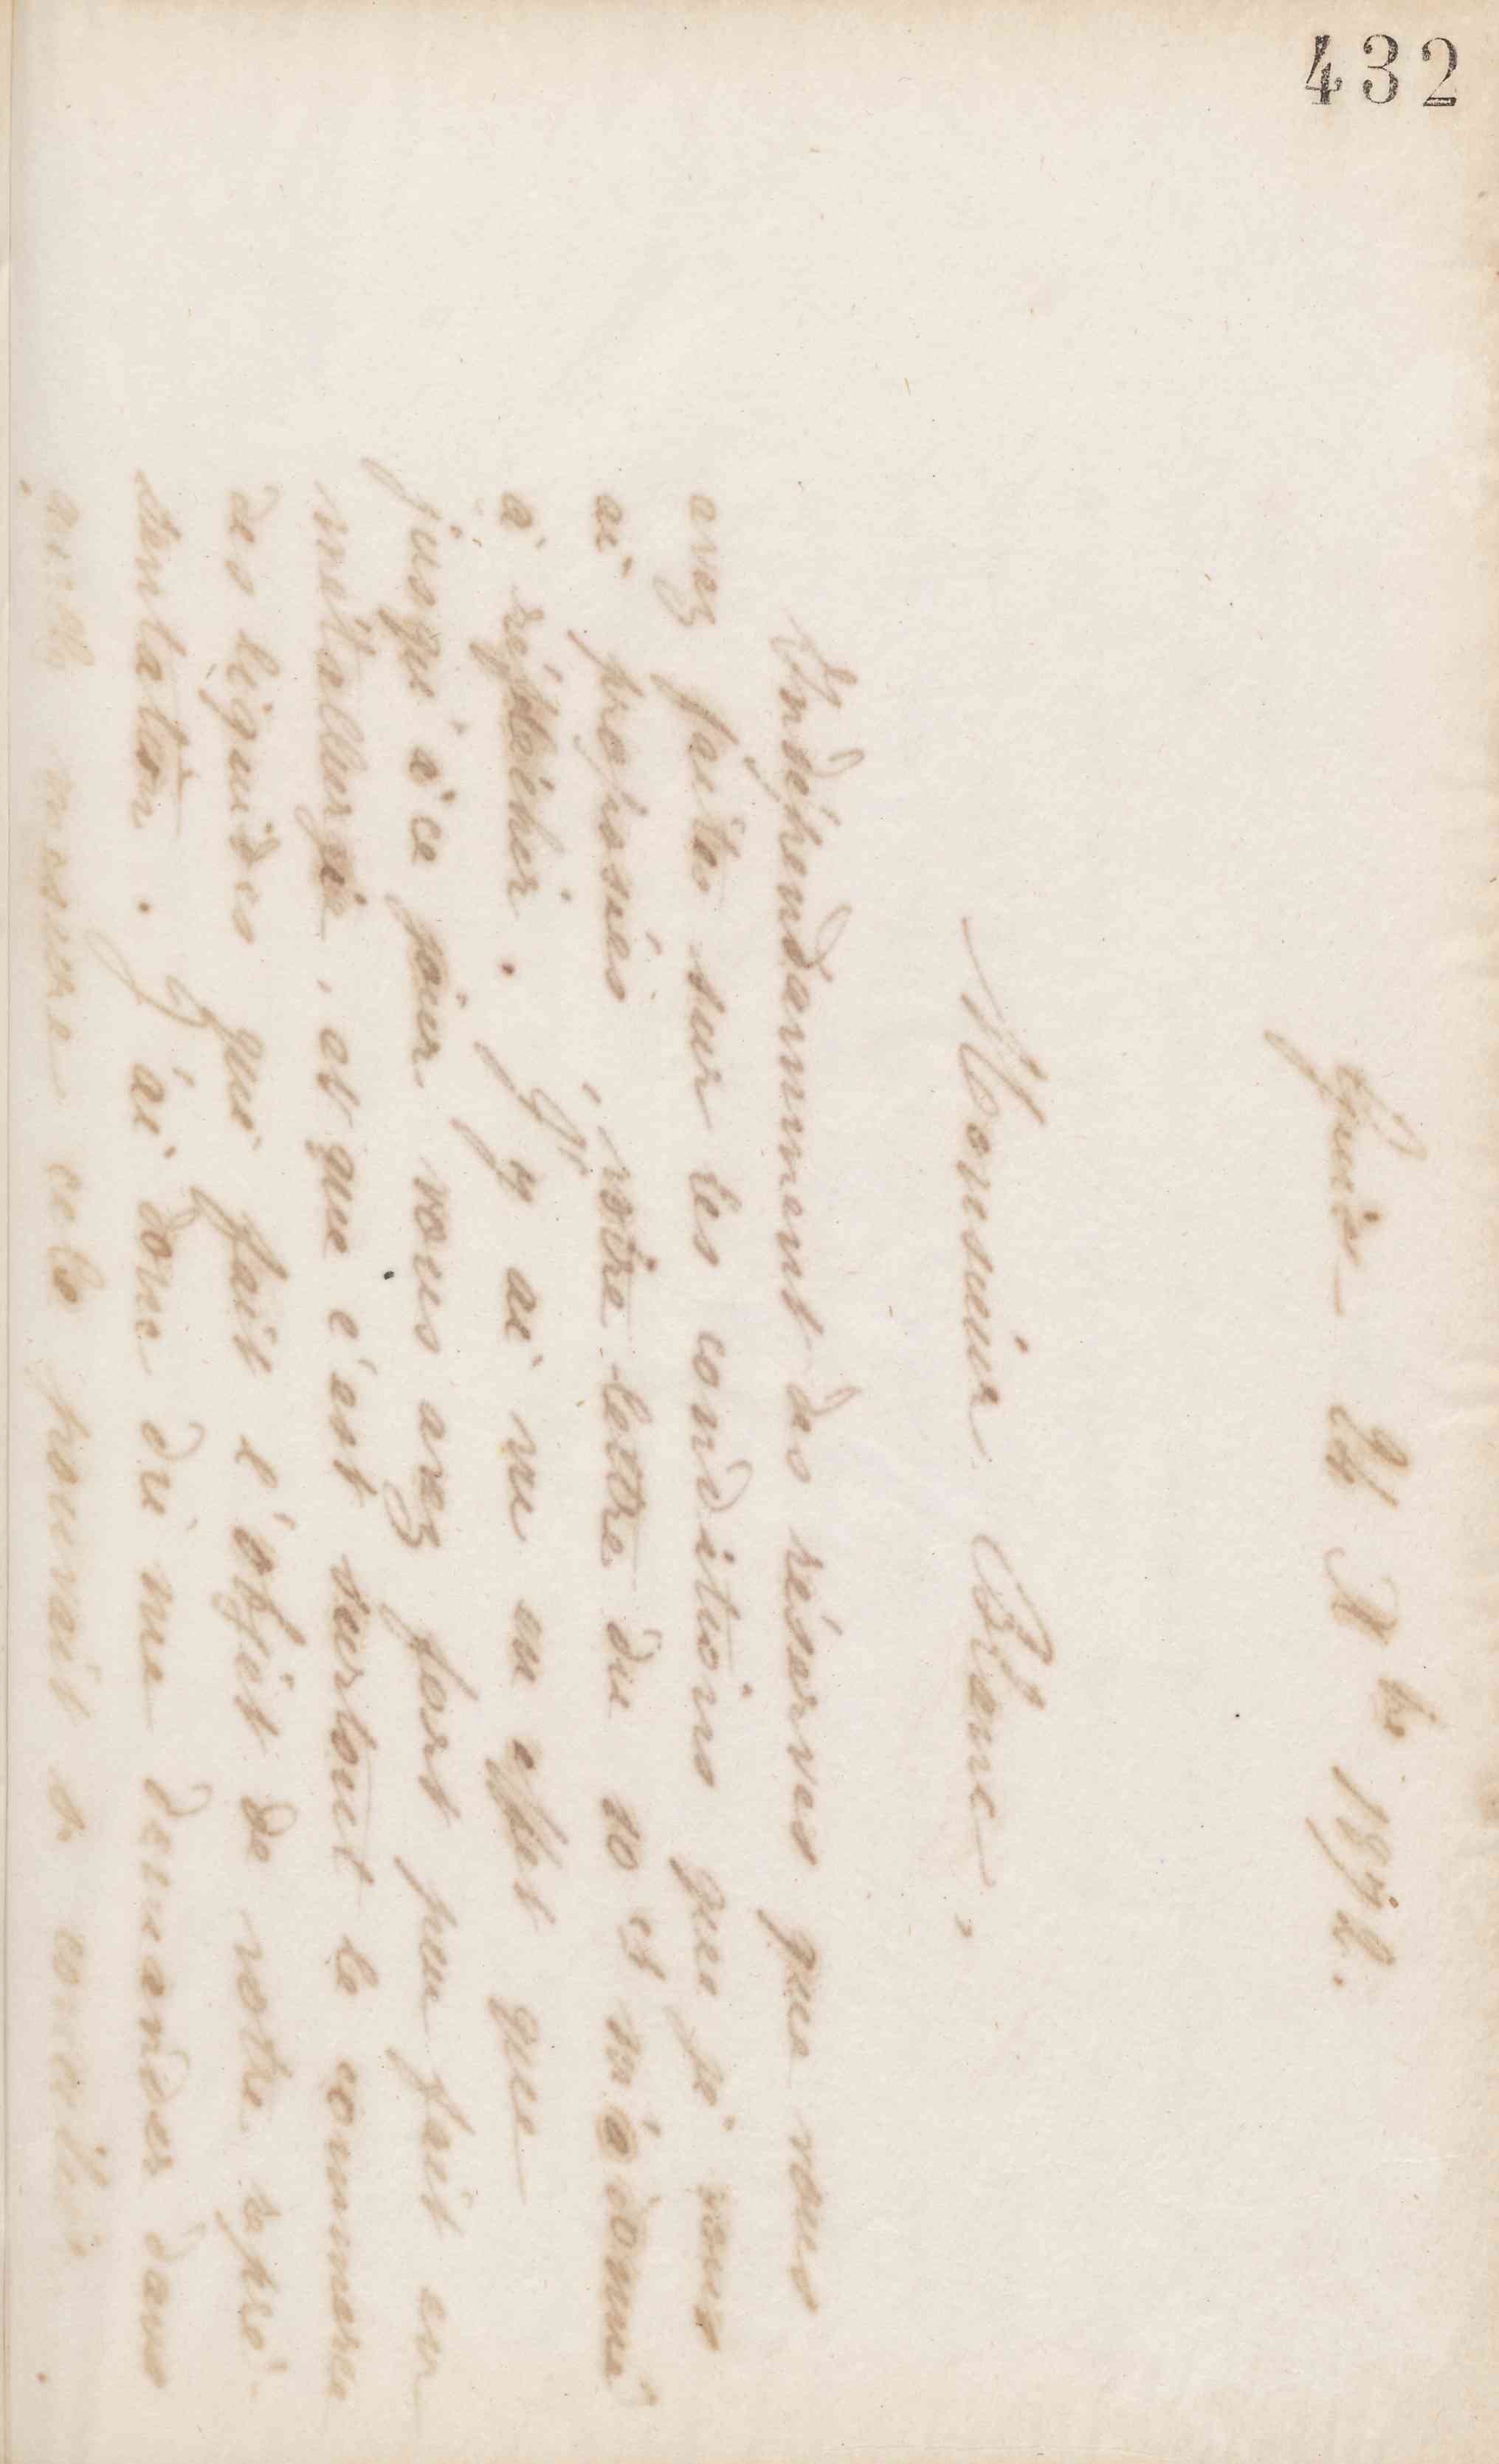 432
Guise 24 Xbre 1872.
Monsieur Blanc,
Indépendamment des réserves que vous
avez faites sur les conditions que je vous
ai proposées, votre lettre du 20 ct m'a donné
à réfléchir. J'y ai vu en effet que
jusqu'à ce jour vous avez fort peu fait en
métallurgie, et que c'est surtout le commerce
des liquides qui fait l'objet de votre repré-
sentation. J'ai donc dû me demander dans
quelle mesure cela pouvait se concilier